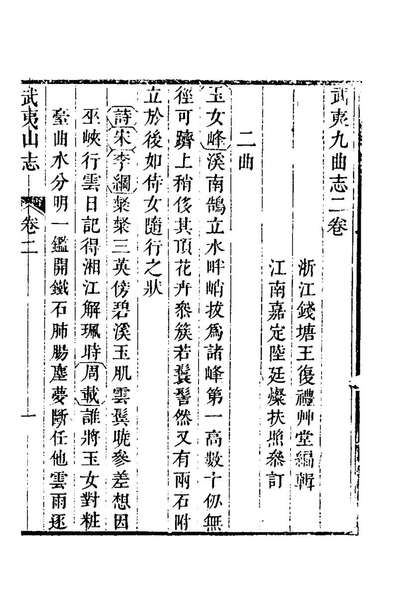 武夷九曲志二卷
浙江錢塘王復禮艸堂編輯
江南嘉定陸廷燦扶照叅訂
二曲
玉女峰溪南鵠立水畔峭拔爲諸峰第一高數十仞無
徑可躋上稍侈其頂花卉叅簇若鬟髻然又有兩石附
立於後如侍女隨行之狀
詩宋李綱粲粲三英傍碧溪玉肌雲鬟曉參差想因
巫峽行雲日記得湘江解珮時周載誰將玉女對粧
臺曲水分明一鑑開鐵石肺腸塵夢斷任他雲雨逐
武夷山志
卷二
一